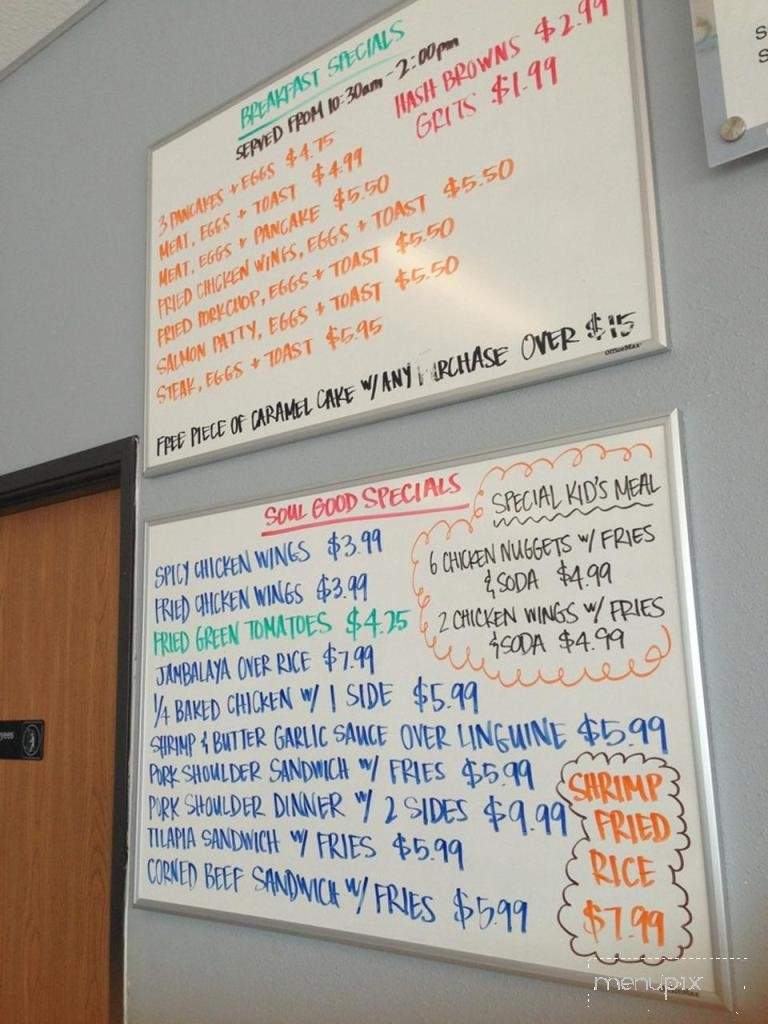 BREAKFAST SPECIALS
SERVED FROM 10:30am - 2:00pm
HASH BROWNS $2.99
GRITS $1.99
3 PANCAKES + EGGS $4.75
MEAT, EGGS + TOAST $4.99
MEAT, EGGS + PANCAKE $5.50
FRIED CHICKEN WINGS, EGGS + TOAST $5.50
FRIED PORKCHOP, EGGS + TOAST $5.50
SALMON PATTY, EGGS + TOAST $5.50
STEAK, EGGS + TOAST $5.95
FREE PIECE OF CARAMEL CAKE W/ ANY PURCHASE OVER $15
OfficeMax
SOUL GOOD SPECIALS
SPICY CHICKEN WINGS $3.99
FRIED CHICKEN WINGS $3.99
FRIED GREEN TOMATOES $4.25
JAMBALAYA OVER RICE $7.99
1/4 BAKED CHICKEN W/ 1 SIDE $5.99
SHRIMP & BUTTER GARLIC SAUCE OVER LINGUINE $5.99
PORK SHOULDER SANDWICH W/ FRIES $5.99
PORK SHOULDER DINNER W/ 2 SIDES $9.99
TILAPIA SANDWICH W/ FRIES $5.99
CORNED BEEF SANDWICH W/ FRIES $5.99
SPECIAL KID'S MEAL
6 CHICKEN NUGGETS W/ FRIES
& SODA $4.99
2 CHICKEN WINGS W/ FRIES
& SODA $4.99
SHRIMP
FRIED
RICE
$7.99
menupix